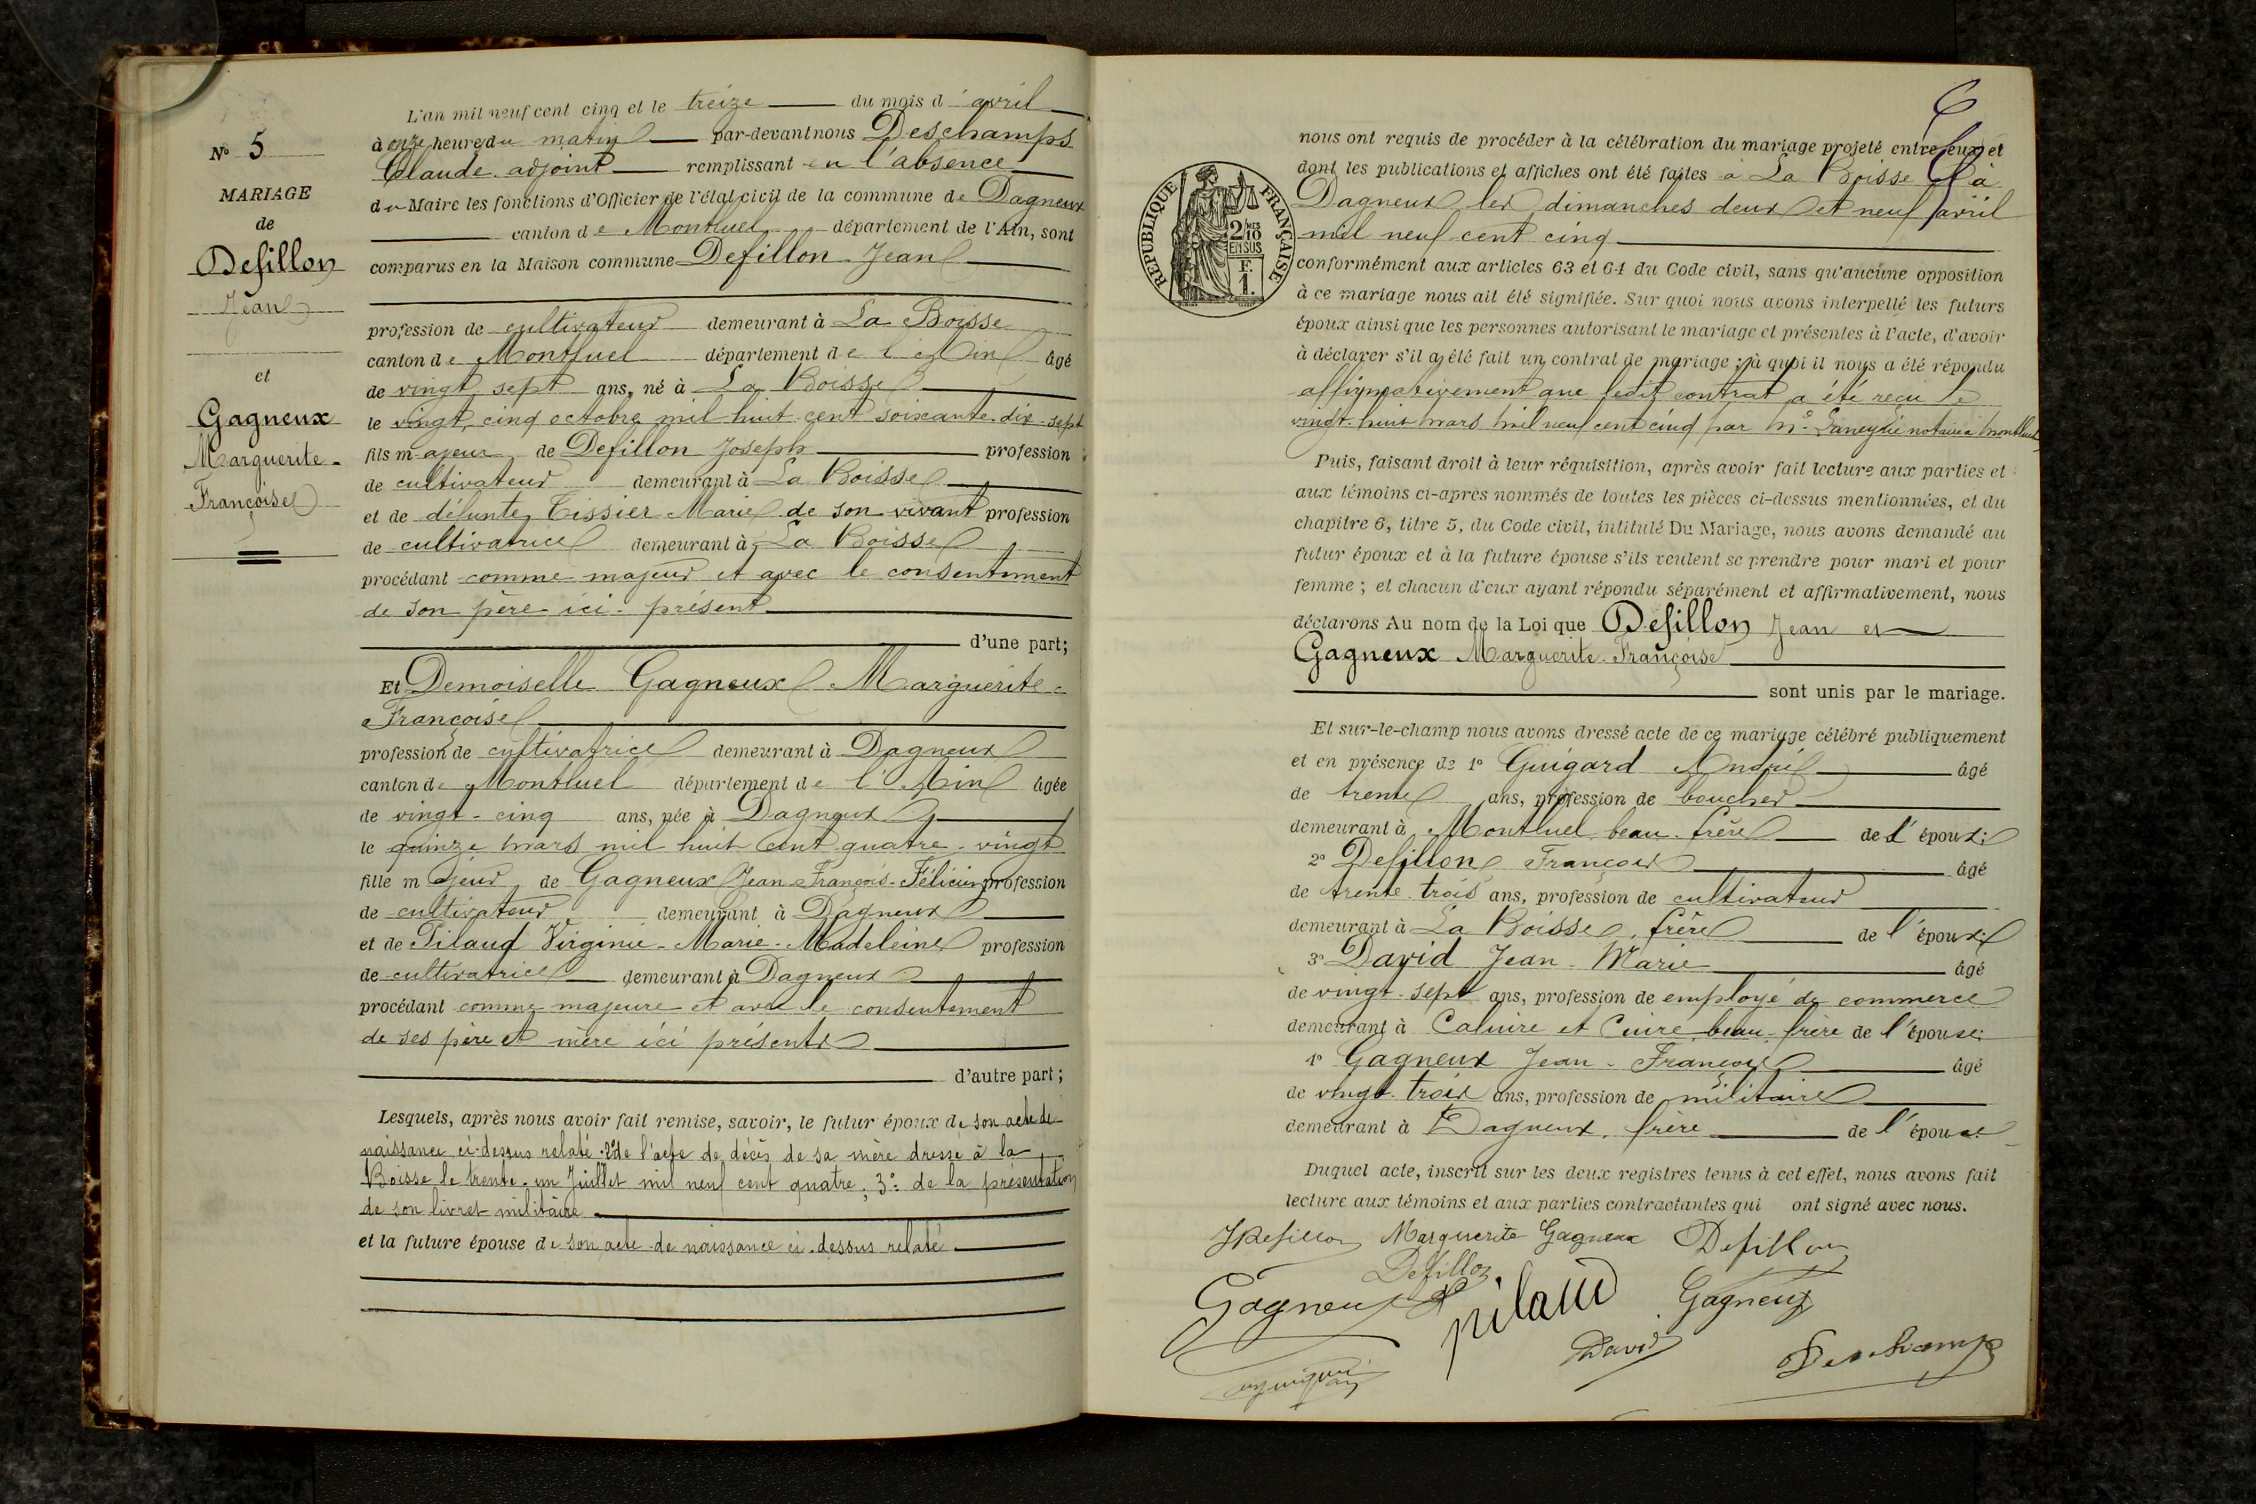 N° 5
MARIAGE
de
Defillon
Jean
et
Gagneux
Marguerite-
Françoise
L'an mil neuf cent cinq et le treize du mois d'avril
à onze heures du matin par-devant nous Deschamps
Claude adjoint remplissant en l'absence
du Maire les fonctions d'Officier de l'état civil de la commune de Dagneux
canton de Montluel département de l'Ain, sont
comparus en la Maison commune Defillon Jean
profession de cultivateur demeurant à La Boisse
canton de Montluel département de l'Ain âgé
de vingt sept ans, né à La Boisse
le vingt cinq octobre mil huit cent soixante-dix-sept
fils majeur de Defillon Joseph profession
de cultivateur demeurant à La Boisse
et de défunte Tissier Marie de son vivant profession
de cultivatrice demeurant à La Boisse
procédant comme majeur et avec le consentement
de son père ici présent
d'une part;
Et Demoiselle Gagneux Marguerite-
Françoise
profession de cultivatrice demeurant à Dagneux
canton de Montluel département de l'Ain âgée
de vingt-cinq ans, née à Dagneux
le quinze mars mil huit cent quatre-vingt
fille majeur de Gagneux Jean-François-Félicien profession
de cultivateur demeurant à Dagneux
et de Pilaud Virginie-Marie-Madeleine profession
de cultivatrice demeurant à Dagneux
procédant comme majeure et avec le consentement
de ses père et mère ici présents
d'autre part;
Lesquels, après nous avoir fait remise, savoir, le futur époux de son acte de
naissance ci-dessus relaté 2° de l'acte de décès de sa mère dressé à la
Boisse le trente-un Juillet mil neuf cent quatre; 3° de la présentation
de son livret militaire
et la future épouse de son acte de naissance ci-dessus relaté
6
RÉPUBLIQUE FRANÇAISE
2/10 MES
EN SUS
F.
1.
nous ont requis de procéder à la célébration du mariage projeté entre eux et
dont les publications et affiches ont été faites à La Boisse et à
Dagneux les dimanches deux et neuf avril
mil neuf cent cinq
conformément aux articles 63 et 64 du Code civil, sans qu'aucune opposition
à ce mariage nous ait été signifiée. Sur quoi nous avons interpellé les futurs
époux ainsi que les personnes autorisant le mariage et présentes à l'acte, d'avoir
à déclarer s'il a été fait un contrat de mariage; à quoi il nous a été répondu
affirmativement que ledit contrat a été reçu le
vingt-huit mars mil neuf cent cinq par Me Laneyrie notaire à Montluel
Puis, faisant droit à leur réquisition, après avoir fait lecture aux parties et
aux témoins ci-après nommés de toutes les pièces ci-dessus mentionnées, et du
chapitre 6, titre 5, du Code civil, intitulé Du Mariage, nous avons demandé au
futur époux et à la future épouse s'ils veulent se prendre pour mari et pour
femme; et chacun d'eux ayant répondu séparément et affirmativement, nous
déclarons Au nom de la Loi que Defillon Jean et
Gagneux Marguerite-Françoise
sont unis par le mariage.
Et sur-le-champ nous avons dressé acte de ce mariage célébré publiquement
et en présence de 1° Guigard André âgé
de trente ans, profession de boucher
demeurant à Montluel, beau-frère de l'époux;
2° Defillon François âgé
de trente trois ans, profession de cultivateur
demeurant à La Boisse, frère de l'époux;
3° David Jean-Marie âgé
de vingt-sept ans, profession de employé de commerce
demeurant à Caluire et Cuire, beau-frère de l'épouse;
4° Gagneux Jean-François âgé
de vingt-trois ans, profession de militaire
demeurant à Dagneux, frère de l'épouse
Duquel acte, inscrit sur les deux registres tenus à cet effet, nous avons fait
lecture aux témoins et aux parties contractantes qui ont signé avec nous.
J Defillon Marguerite Gagneux Defillon
Defillon
Gagneux pilaud Gagneux
David Deschamps